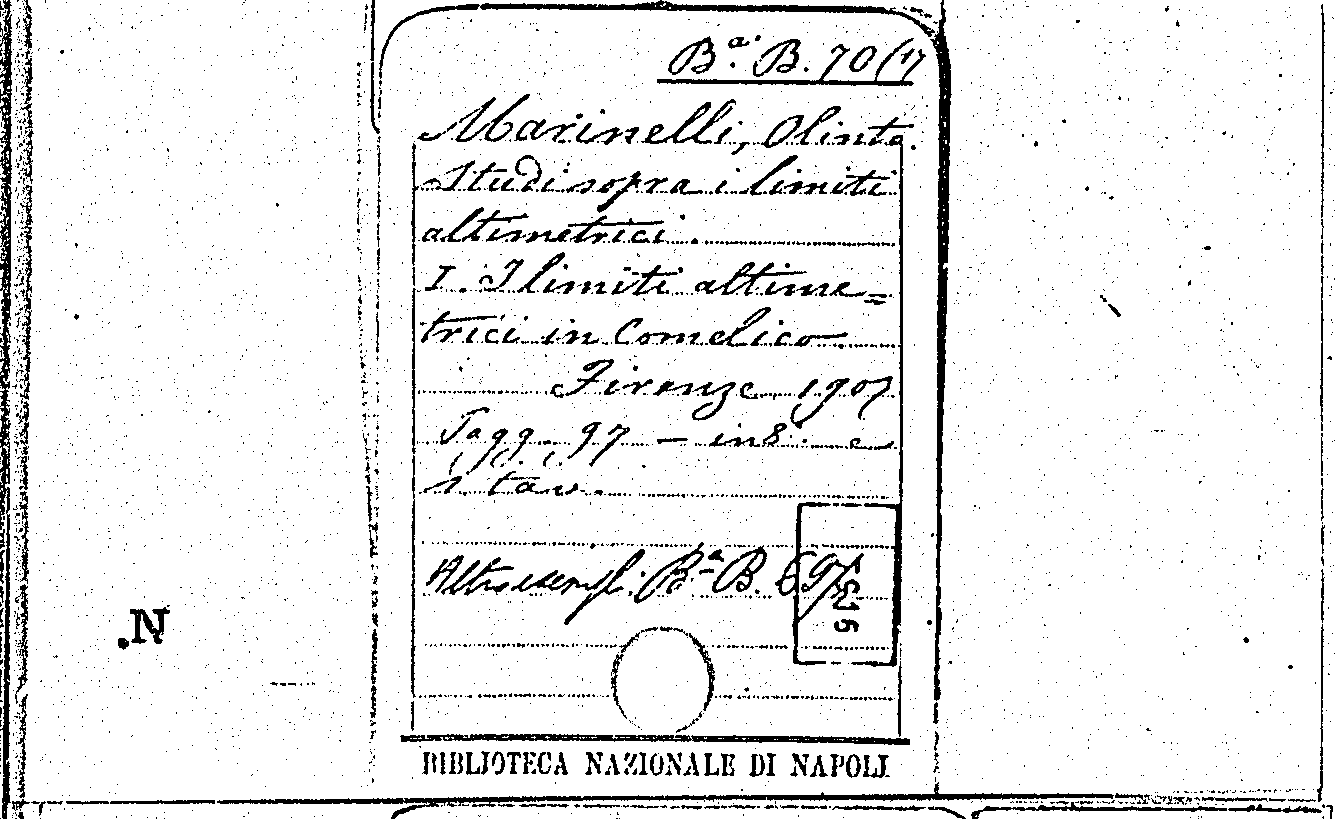 Bª. B. 70(17
Marinelli, Olinto.
Studi sopra i limiti
altimetrici.
I. I limiti altime=
trici in Comelico.
Firenze, 1907
Pagg. 97 — in 8°. e
1. tav.
Altro esempl. Bª B.
N.
BIBLIOTECA NAZIONALE DI NAPOLI